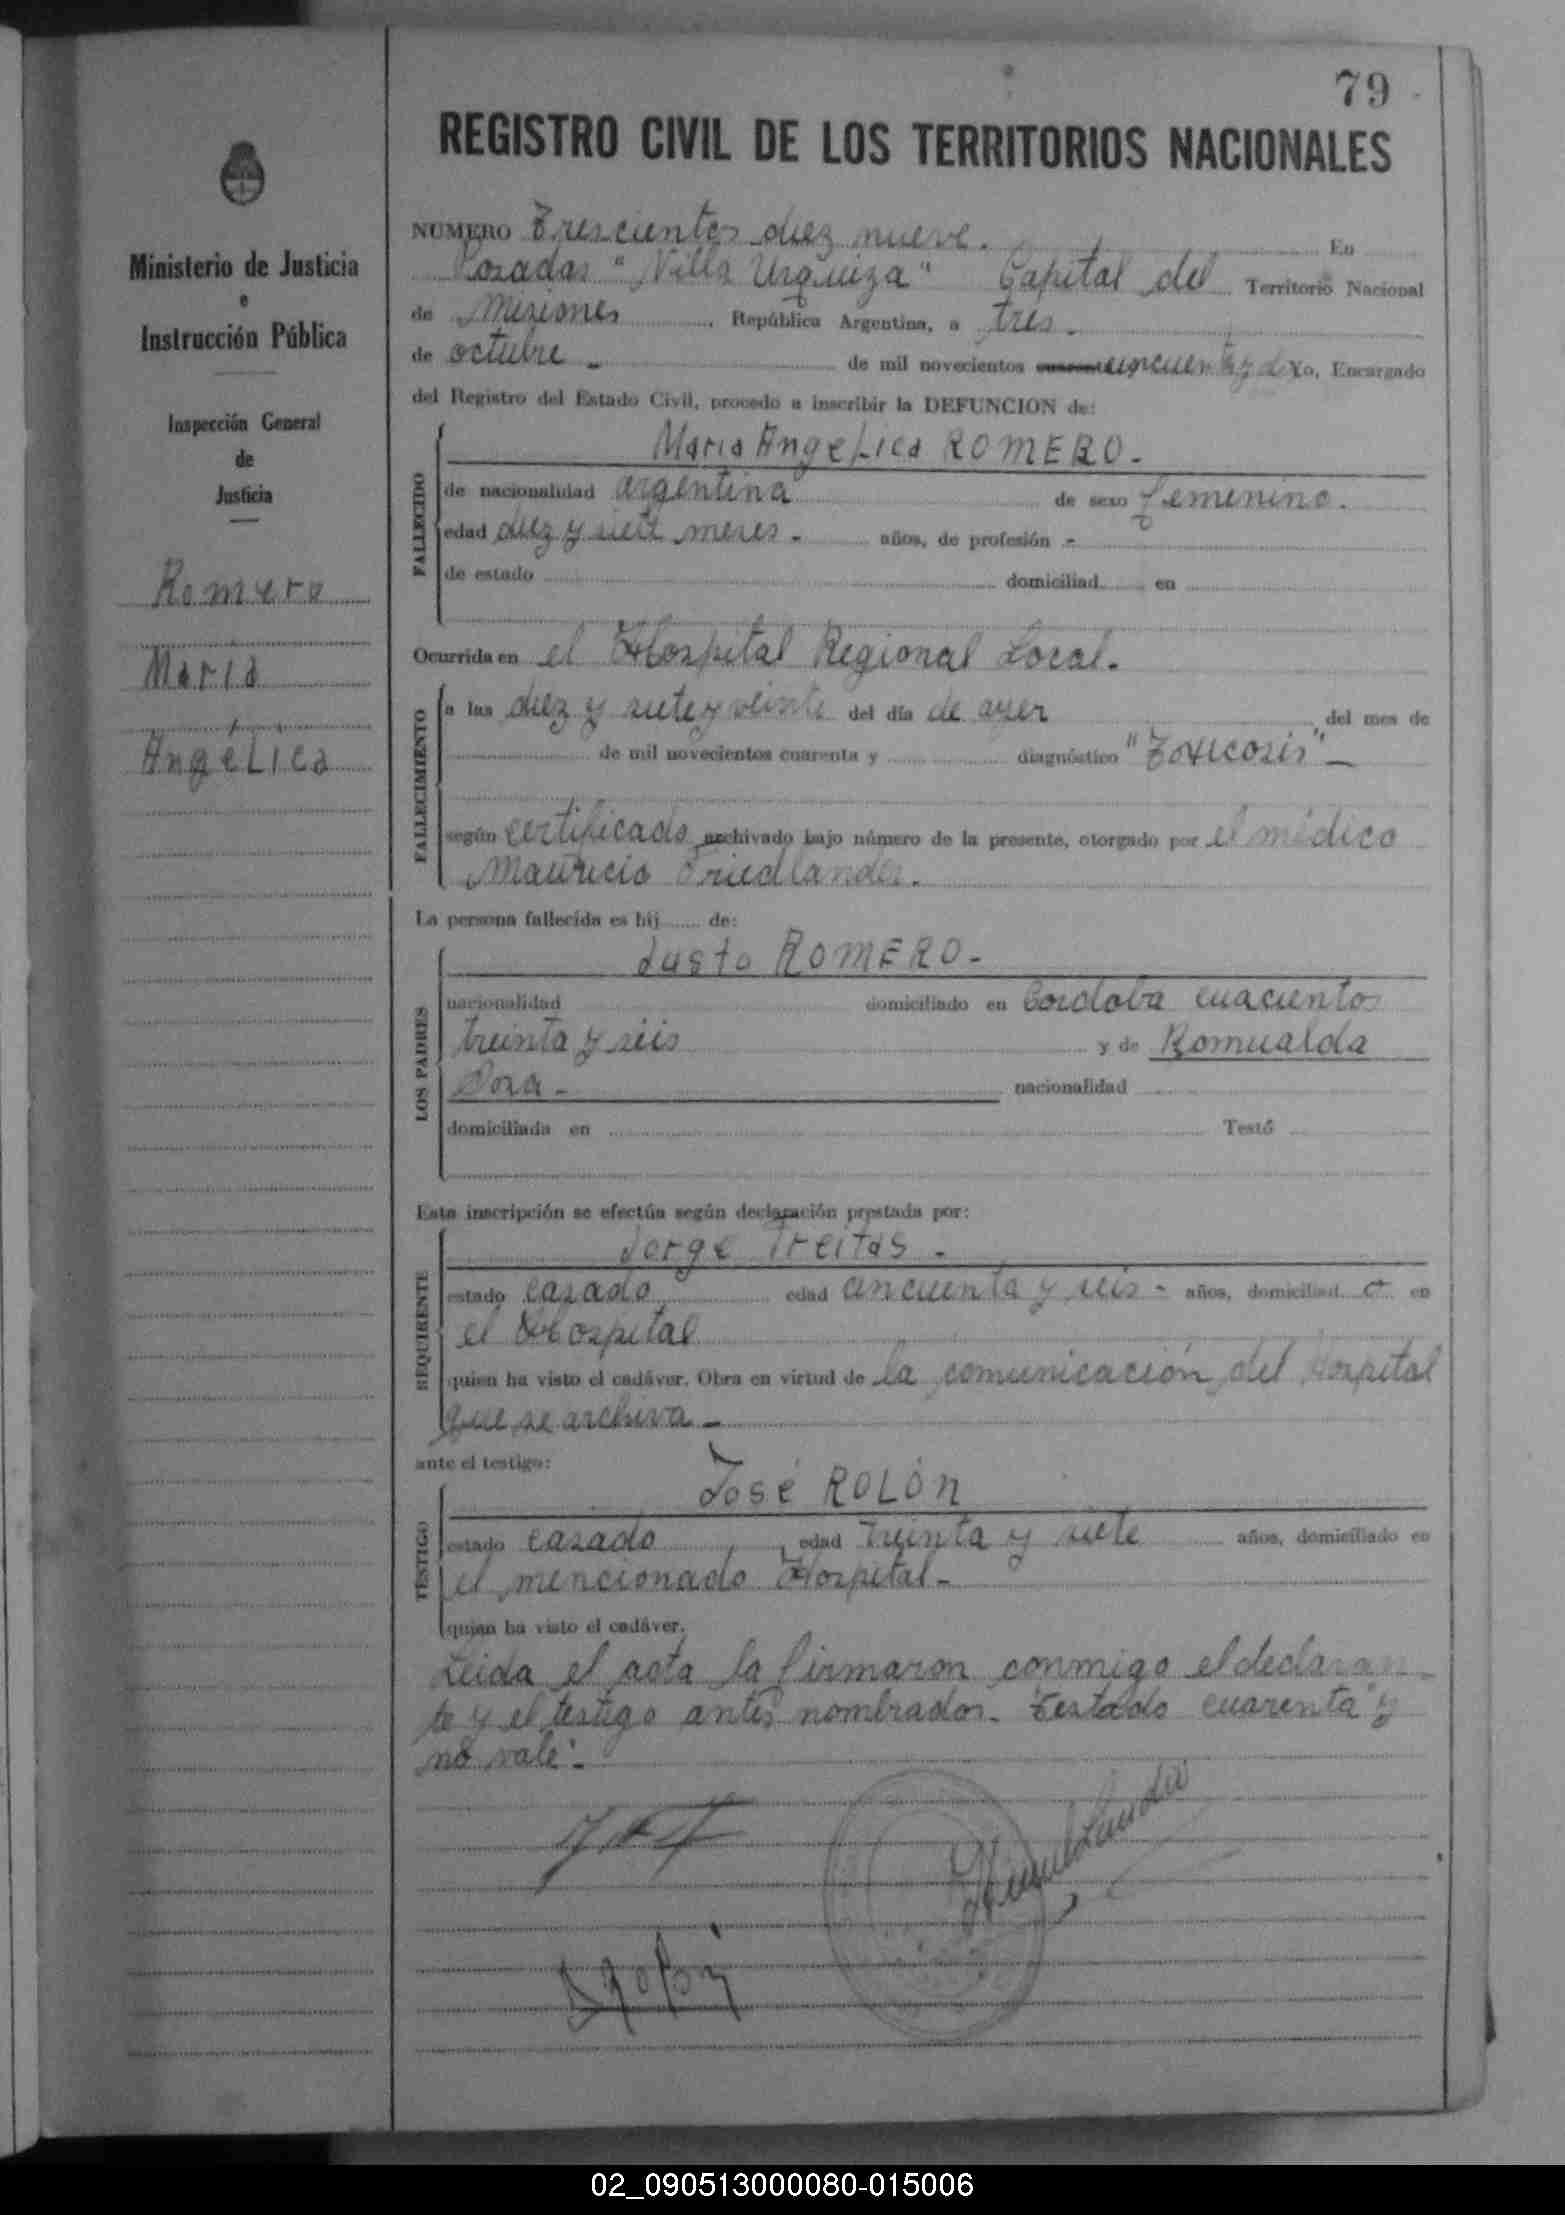 79
REGISTRO CIVIL DE LOS TERRITORIOS NACIONALES
Ministerio de Justicia
e
Instrucción Pública
Inspección General
de
Justicia
Romero
María
Angélica
NUMERO Trescientos diez nueve. En
Posadas "Villa Urquiza" Capital del Territorio Nacional
de Misiones, República Argentina, a tres.
de octubre - de mil novecientos cincuenta y Yo, Encargado
del Registro del Estado Civil, procedo a inscribir la DEFUNCION de:
FALLECIDO
Maria Angelica ROMERO-
de nacionalidad argentina de sexo femenino.
edad diez y siete meses - años, de profesión -
de estado domiciliad en
Ocurrida en el Hospital Regional Local.
FALLECIMIENTO
a las diez y siete y veinte del día de ayer del mes de
de mil novecientos cuarenta y diagnóstico "Toxicosis" -
según certificado archivado bajo número de la presente, otorgado por el médico
Mauricio Friedlander.
La persona fallecida es hij de:
LOS PADRES
Justo ROMERO-
nacionalidad domiciliado en Cordoba cuacientos
treinta y seis y de Romualda
Sosa- nacionalidad
domiciliada en Testó
Esta inscripción se efectúa según declaración prestada por:
REQUIRENTE
Jorge Freitas -
estado casado edad cincuenta y seis - años, domiciliad o en
el Hospital
quien ha visto el cadáver. Obra en virtud de la comunicación del Hospital
que se archiva -
ante el testigo:
TESTIGO
José ROLÓN
estado casado, edad treinta y siete años, domiciliado en
el mencionado Hospital-
quien ha visto el cadáver.
Leida el acta la firmaron conmigo el declaran-
te y el testigo antes nombrados. Testado cuarenta "y
no vale".
02_090513000080-015006